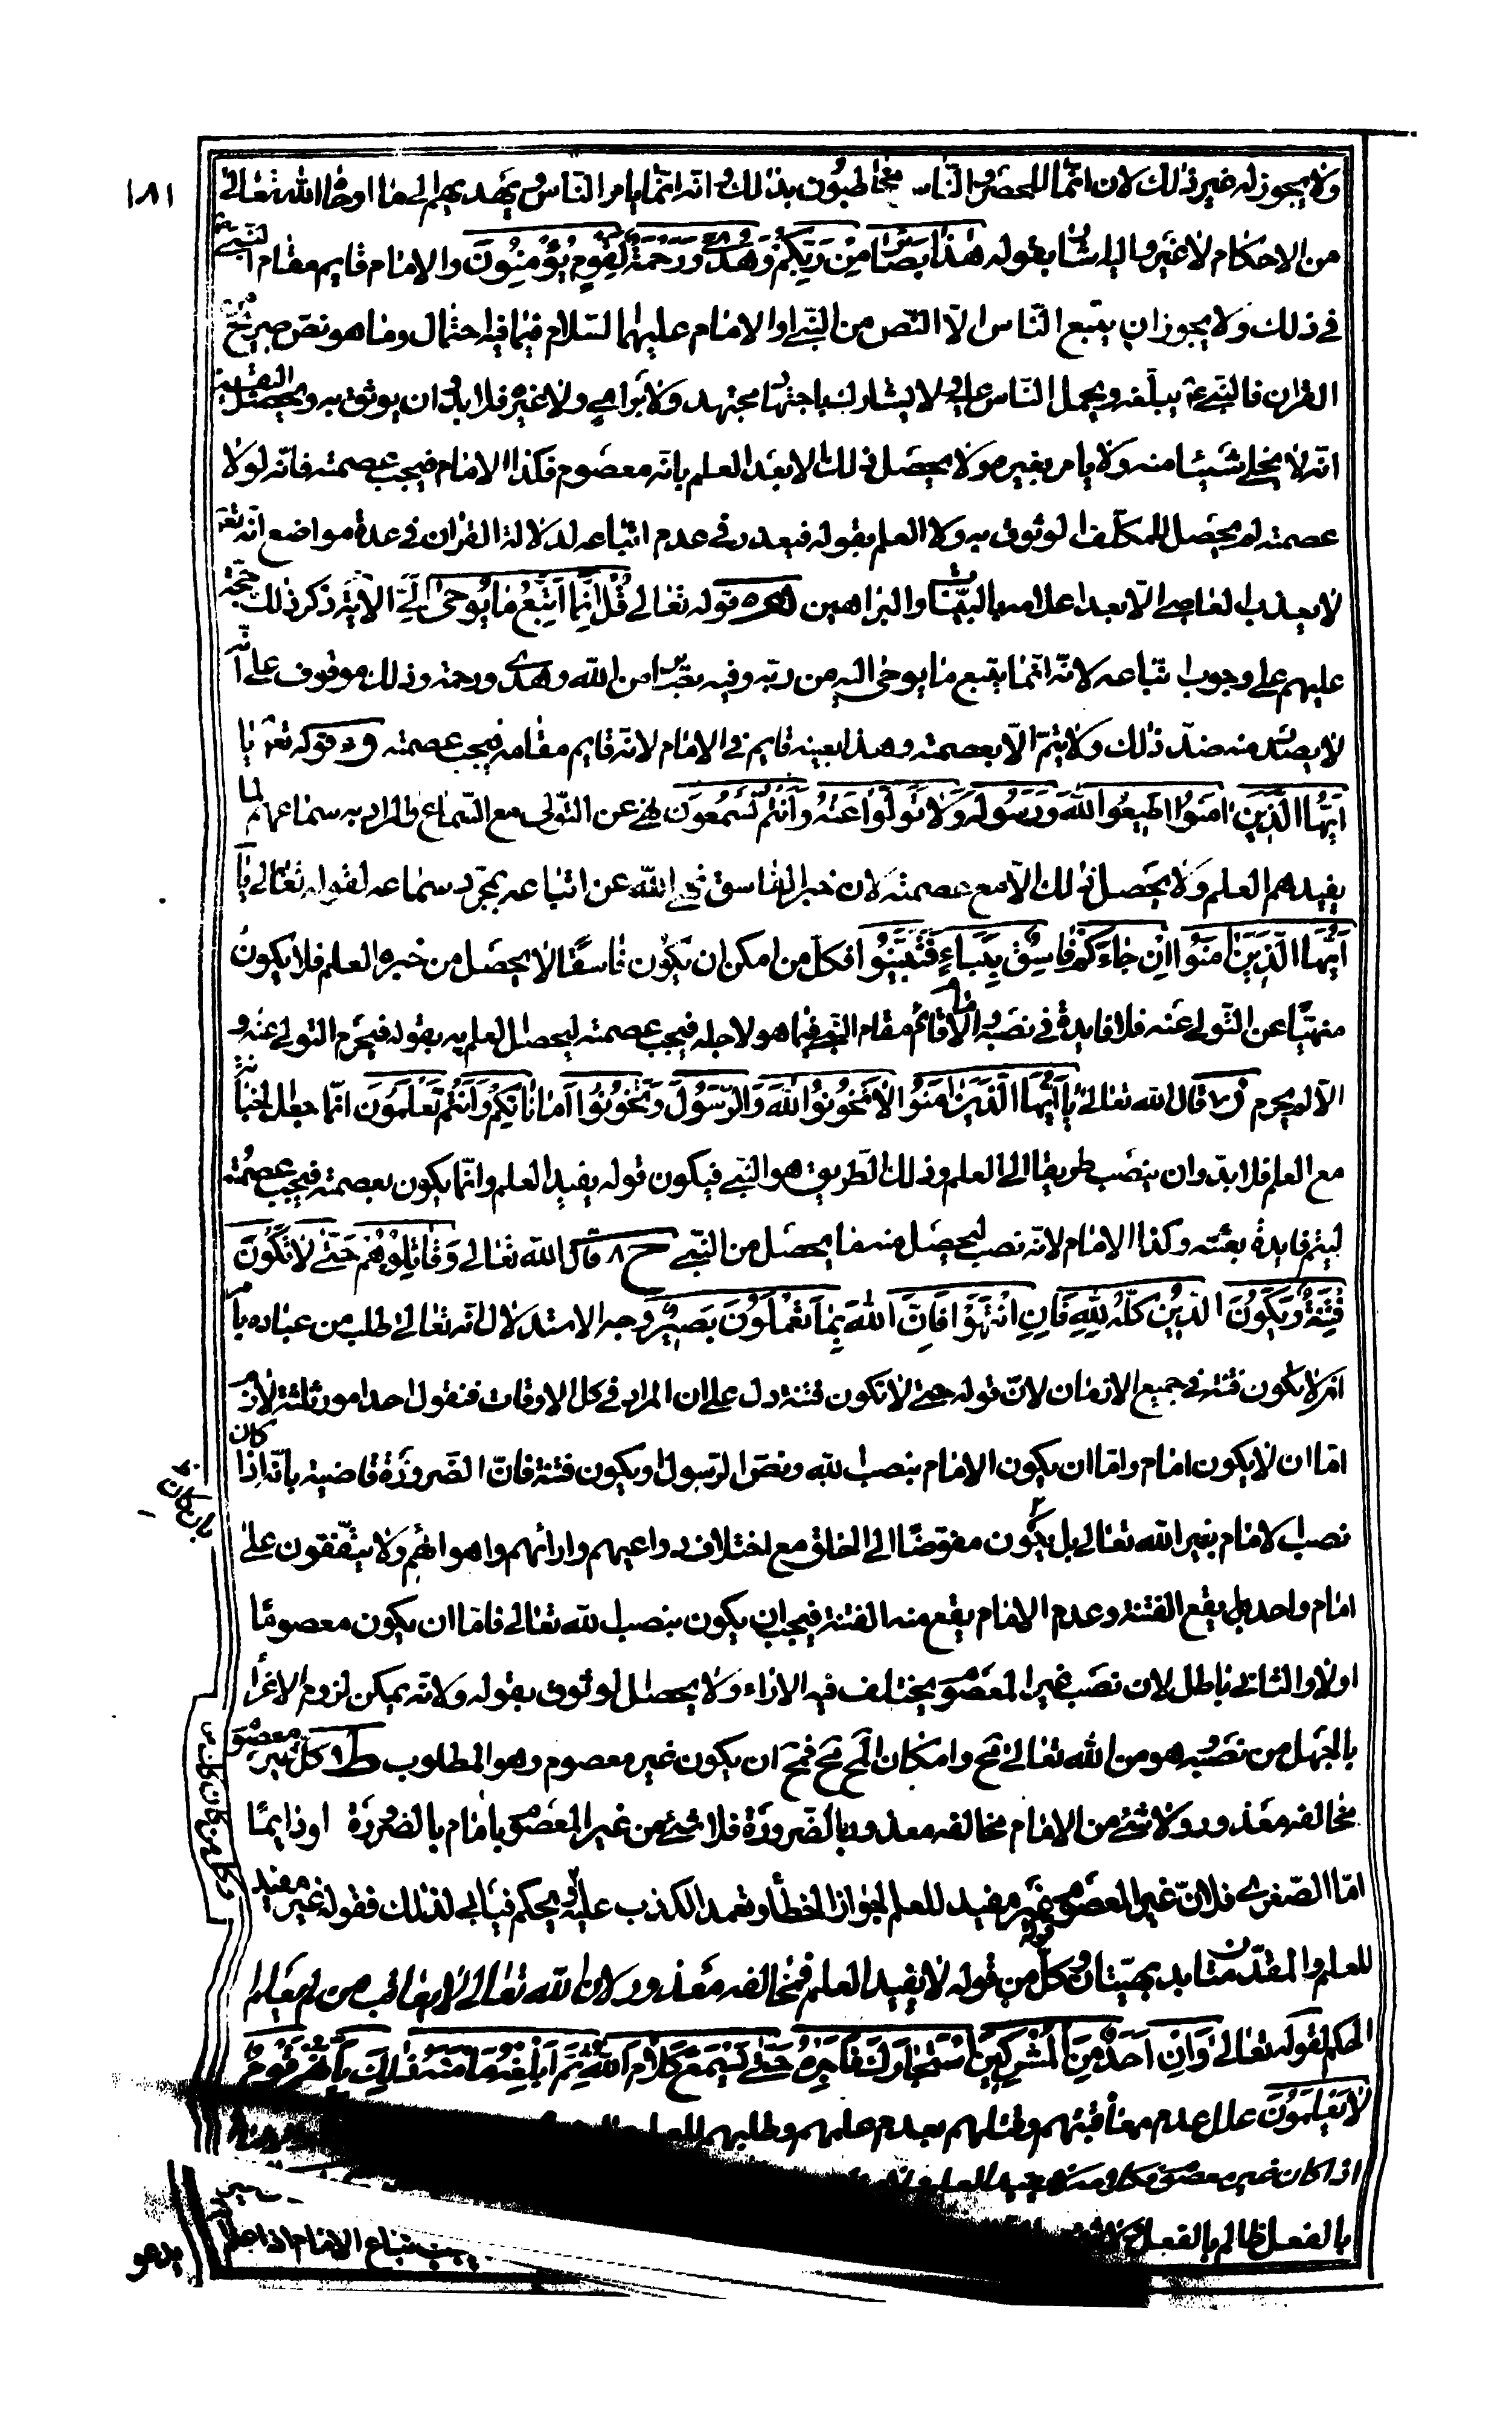 ١٨١
ولا يجوز له غير ذلك لان انّما للحصر والنّاس مخاطبون بذلك وانّه انّما يامر النّاس ويهديهم الى ما اوحاه الله تعالى
من الاحكام لا غير واليه اشار بقوله هٰذا بَصَائِرُ مِنْ رَبِّكُمْ وَهُدًى وَرَحْمَةٌ لِقَوْمٍ يُؤْمِنُونَ والامام قايم مقام النّبي
في ذلك ولا يجوز ان يتبع النّاس الّا النّص من النّبي او الامام عليهما السّلام فيما فيه احتمال وما هو نصّ صريح
القران فالنّبي ع يبلّغه ويحمل النّاس عليه ولا يشاركه باجتهاد مجتهد ولا براى ولا غيره فلا بدّ ان يوثق به ويحصل اليقين
انّه لا يخلي شيئا منه ولا يامر بغيره ولا يحصل ذلك الا بعد العلم بانّه معصوم فكذا الامام فيجب عصمته فانّه لولا
عصمته لم يحصل للمكلّف الوثوق به ولا العلم بقوله فيعذر في عدم اتباعه لدلالة القران في عدة مواضع انّه تعالى
لا يعذب العاصي الّا بعد اعلامه بالبيّنات والبراهين قوله تعالى قُلْ اِنَّمَا اَتَّبِعُ مَا يُوحىٰ اِلَيَّ الاية ذكر ذلك حجّة
عليهم على وجوب اتباعه لانّه انّما يتبع ما يوحى اليه من ربّه وفيه بصائر من الله وهدى ورحمة وذلك موقوف على انّه
لا يصدر منه ضدّ ذلك ولا يتمّ الّا بعصمته وهذا بعينه قايم في الامام لانّه قايم مقامه فيجب عصمته و قوله تعالى يا
اَيُّهَا الَّذِينَ اٰمَنُوا اَطِيعُوا اللهَ وَرَسُولَهُ وَلَا تَوَلَّوْا عَنْهُ وَاَنْتُمْ تَسْمَعُونَ نهى عن التّولى مع السّماع والمراد به سماعهم لما
يفيدهم العلم ولا يحصل ذلك الّا مع عصمته لان خبر الفاسق نهى الله عن اتباعه بمجرّد سماعه لقوله تعالى يا
اَيُّهَا الَّذِينَ اٰمَنُوا اِنْ جَاءَكُمْ فَاسِقٌ بِنَبَاءٍ فَتَبَيَّنُوا فكلّ من امكن ان يكون فاسقا لا يحصل من خبره العلم فلا يكون
منهيّا عن التّولي عنه فلا فايدة في نصبه والامام قائم مقام النّبي فيما هو لاجله فيجب عصمته ليحصل العلم به بقوله فيحرم التولي عنه و
الّا لم يحرم قال الله تعالى يَا اَيُّهَا الَّذِينَ اٰمَنُوا لَا تَخُونُوا اللهَ وَالرَّسُولَ وَتَخُونُوا اَمَانَاتِكُمْ وَاَنْتُمْ تَعْلَمُونَ انّما جعل الخيانة
مع العلم فلا بدّ وان ينصب طريقا الى العلم وذلك الطريق هو النّبي فيكون قوله يفيد العلم وانّما يكون بعصمته فيجب عصمته
ليتم فايدة بعثته وكذا الامام لانّه نصب ليحصل منه ما يحصل من النّبي ح ٨ قال الله تعالى وَقَاتِلُوهُمْ حَتّىٰ لَا تَكُونَ
فِتْنَةٌ وَيَكُونَ الدِّينُ كُلُّهُ لِلّٰهِ فَاِنِ انْتَهَوْا فَاِنَّ اللهَ بِمَا تَعْمَلُونَ بَصِيرٌ وجه الاستدلال انّه تعالى طلب من عباده با
انّه لا يكون فتنة في جميع الازمان لانّ قوله حتى لا تكون فتنة دل على ان المراد في كل الاوقات فنقول احد امور ثلثة لازم
امّا ان لا يكون امام وامّا ان يكون الامام بنصب الله ونصّ الرّسول او يكون فتنة فانّ الضّرورة قاضية بانّه اذا كان
نصب الامام بغير الله تعالى بل يكون مفوّضًا الى الخلق مع اختلاف دواعيهم وارائهم واهوائهم ولا يتّفقون على
امام واحد بل يقع الفتنة وعدم الامام يقع منه الفتنة فيجب ان يكون بنصب الله تعالى فامّا ان يكون معصومًا
اولا والثاني باطل لان نصب غير المعصوم يختلف فيه الاراء ولا يحصل الوثوق بقوله ولانّه يمكن لزوم الاغراء
بالجهل من نصبه هو من الله تعالى مح وامكان المح مح فمح ان يكون غير معصوم وهو المطلوب ط كلّ غير معصوم
مخالفه معذور ولا شئ من الامام مخالفه معذور بالضّرورة فلا شئ من غير المعصوم بامام بالضرورة او دايمًا
امّا الصّغرى فلانّ غير المعصوم قوله غير مفيد للعلم لجواز الخطأ وتعمد الكذب عليه ويحكم فيأبى لذلك فقوله غير مفيد
للعلم والمقدّمتان بديهيّتان وكلّ من قوله لا يفيد العلم فمخالفه معذور ولان الله تعالى لا يعاقب من لم يعلم
الحكم لقوله تعالى وَاِنْ اَحَدٌ مِنَ الْمُشْرِكِينَ اسْتَجَارَكَ فَاَجِرْهُ حَتّىٰ يَسْمَعَ كَلَامَ اللهِ ثُمَّ اَبْلِغْهُ مَأْمَنَهُ ذٰلِكَ بِاَنَّهُمْ قَوْمٌ
لَا يَعْلَمُونَ علل عدم معاقبتهم وقتلهم بعدم علمهم وطلبهم للعلم
اذا كان غير معصوم
بالفعل ظالم بالفعل اتباع الامام اذا
يدعو